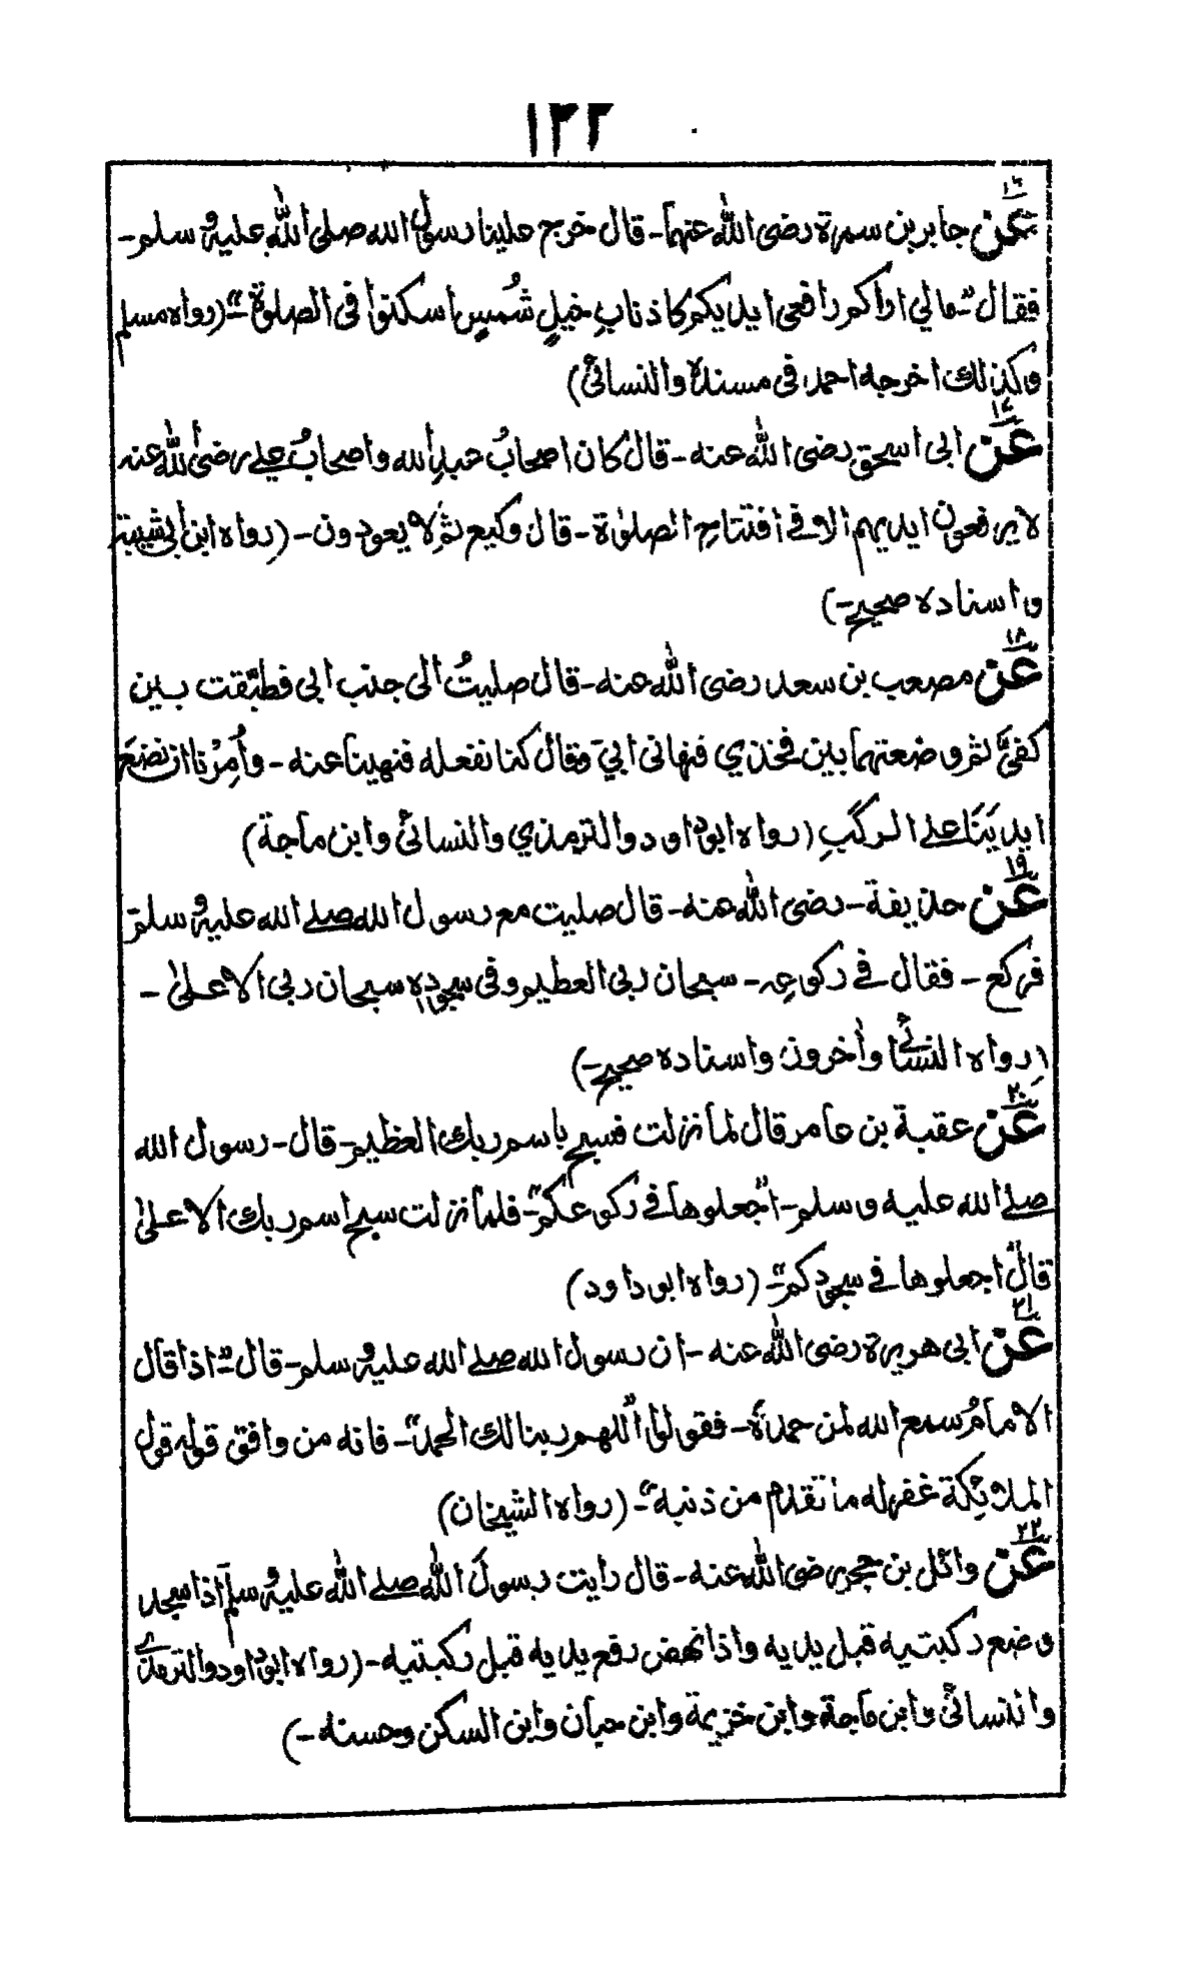 ١٢٢
١٦
عن جابر بن سمرة رضی الله عنهما۔ قال خرج علینا رسول الله صلی الله علیه و سلم۔
فقال "مالي اراكم رافعی ایدیکم کاذنابِ خیلٍ شُمسٍ اسکنوا فی الصلوٰة"۔ (رواه مسلم
وکذلك اخرجه احمد فی مسنده والنسائی)
١٧
عن ابی اسحق رضی الله عنه۔ قال کان اصحابُ عبدِالله واصحابُ علے رضی الله عنه
لا یرفعون ایدیهم الا فے افتتاحِ الصلوٰة۔ قال وکیع ثم لا یعودون۔ (رواه ابن ابی شیبة
واسناده صحیح۔)
١٨
عن مصعب بن سعد رضی الله عنه۔ قال صلیتُ الی جنب ابی فطبّقت بین
کفیَّ ثم وضعتهما بین فخذي فنهانی ابيَ وقال کنا نفعله فنهینا عنه۔ واُمِرْنا ان نضعَ
ایدیَنَا علے الرکَبِ (رواه ابوداود والترمذي والنسائی وابن ماجة)
١٩
عن حذیفة۔ رضی الله عنه۔ قال صلیت مع رسول الله صلے الله علیه و سلم
فرکع۔ فقال فے رکوعِه۔ سبحان ربی العظیم وفی سجوده سبحان ربی الاعلیٰ۔
(رواه النسائی واٰخرون واسناده صحیح۔)
٢٠
عن عقبة بن عامر قال لما نزلت فسبح باسم ربك العظیم۔ قال۔ رسول الله
صلے الله علیه وسلم۔ "اجعلوها فے رکوعکم"۔ فلما نزلت سبح اسم ربك الاعلیٰ
قال "اجعلوها فے سجودکم"۔ (رواه ابوداود)
٢١
عن ابی هریرة رضی الله عنه۔ ان رسول الله صلے الله علیه و سلم۔ قال۔ "اذا قال
الامامُ سمع الله لمن حمده۔ فقولوا "اللهم ربنا لك الحمد"۔ فانه من وافق قوله قول
الملائکة غفرله ما تقدم من ذنبه"۔ (رواه الشیخان)
٢٢
عن وائل بن حجر رضی الله عنه۔ قال رایت رسول الله صلے الله علیه و سلم اذا سجد
وضع رکبتیه قبل یدیه واذا نهض رفع یدیه قبل رکبتیه۔ (رواه ابوداود والترمذی
والنسائی وابن ماجة وابن خزیمة وابن حبان وابن السکن وحسنه۔)